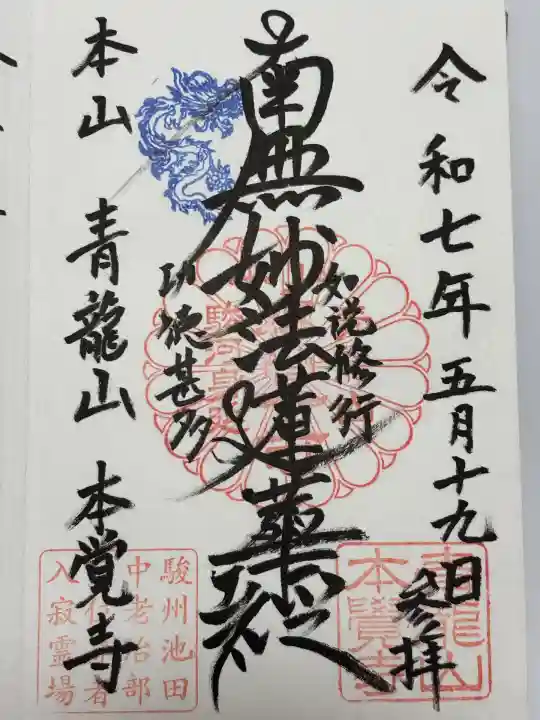 令和七年五月十九日参拝
如説修行
南無妙法蓮華経
功徳甚多
本山 青龍山 本覚寺
青龍山
本覺寺
駿州池田
中老治部
住者
入寂霊場